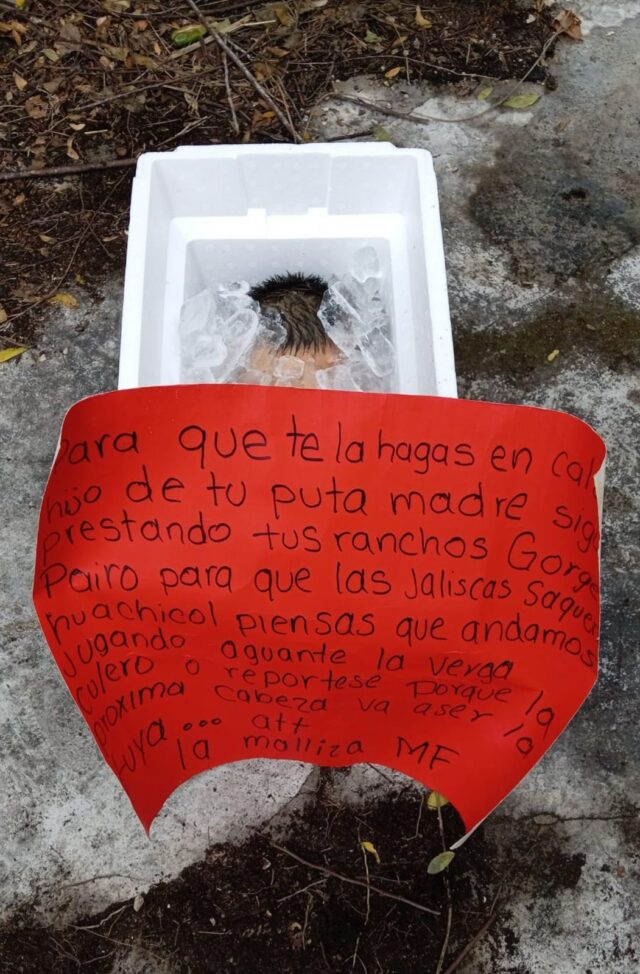 Para que te la hagas en cal
hijo de tu puta madre sigu
prestando tus ranchos Gorge
Pairo para que las Jaliscas Saquen
huachicol piensas que andamos
Jugando aguante la verga
culero o reportese porque la
proxima cabeza va aser la
tuya... att
la malliza MF